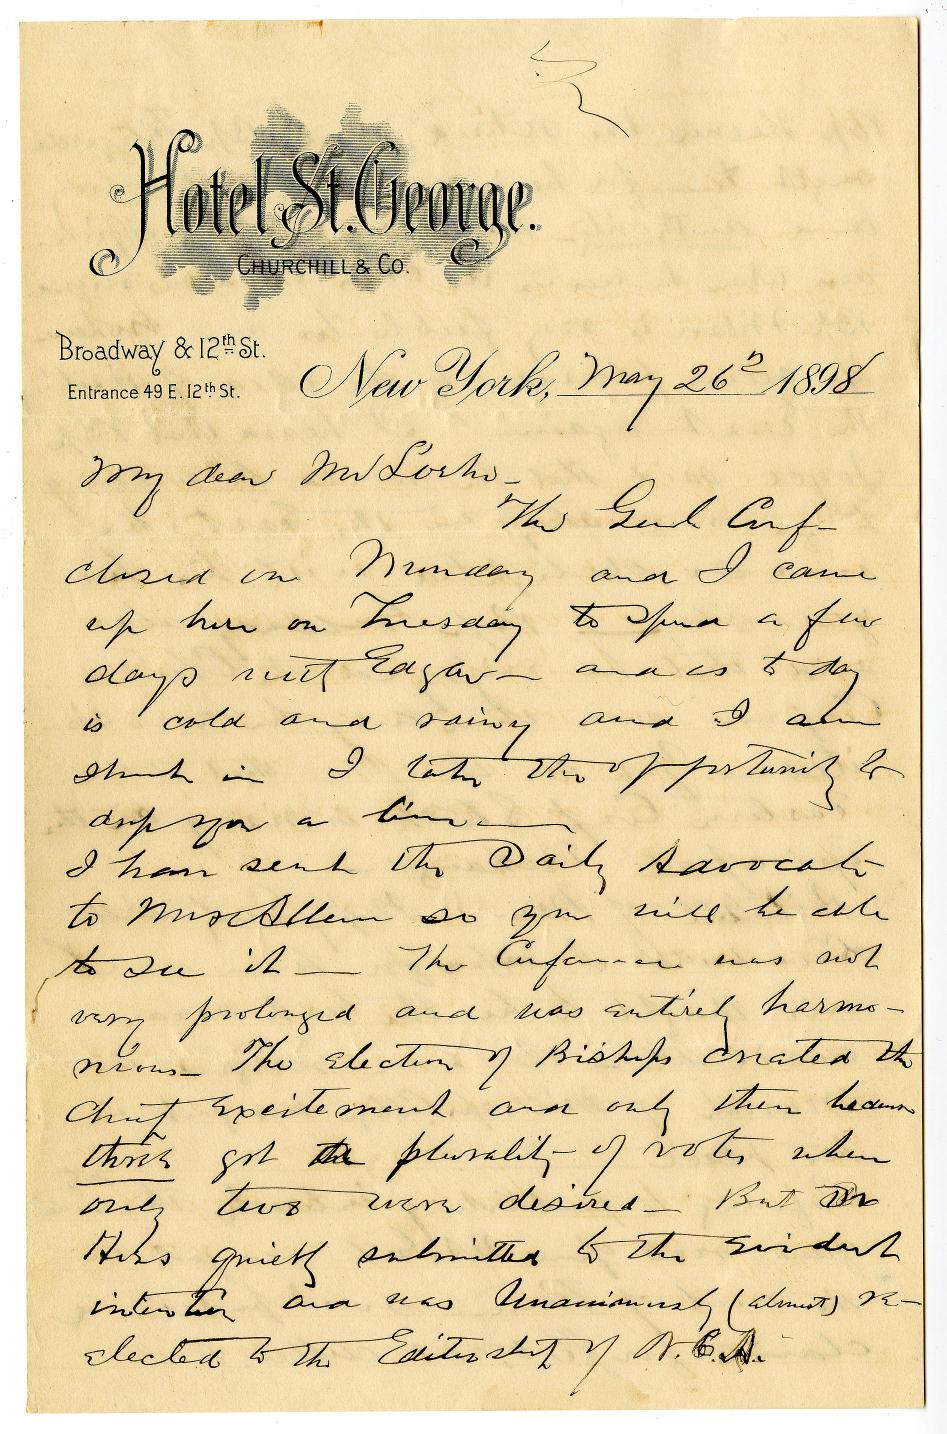 Hotel St. George.
CHURCHILL & CO.
Broadway & 12th St.
Entrance 49 E. 12th St.
New York, May 26th 1898
My dear Mr
The Genl Conf
closed on Monday and I came
up here on Tuesday to spend a few
days with Edgar — and as to day
is cold and rainy and I am
stuck in I take the opportunity to
drop you a line —
I have sent the Daily Advocate
to Mrs Allen so you will be able
to see it — The Conference was not
very prolonged and was entirely harmo-
nious — The election of Bishops created the
chief excitement and only then because
three got the plurality of votes when
only two were desired — But Dr
quietly submitted to the evident
intention and was unanimously (almost) re-
elected to the Editorship of N.C.A.